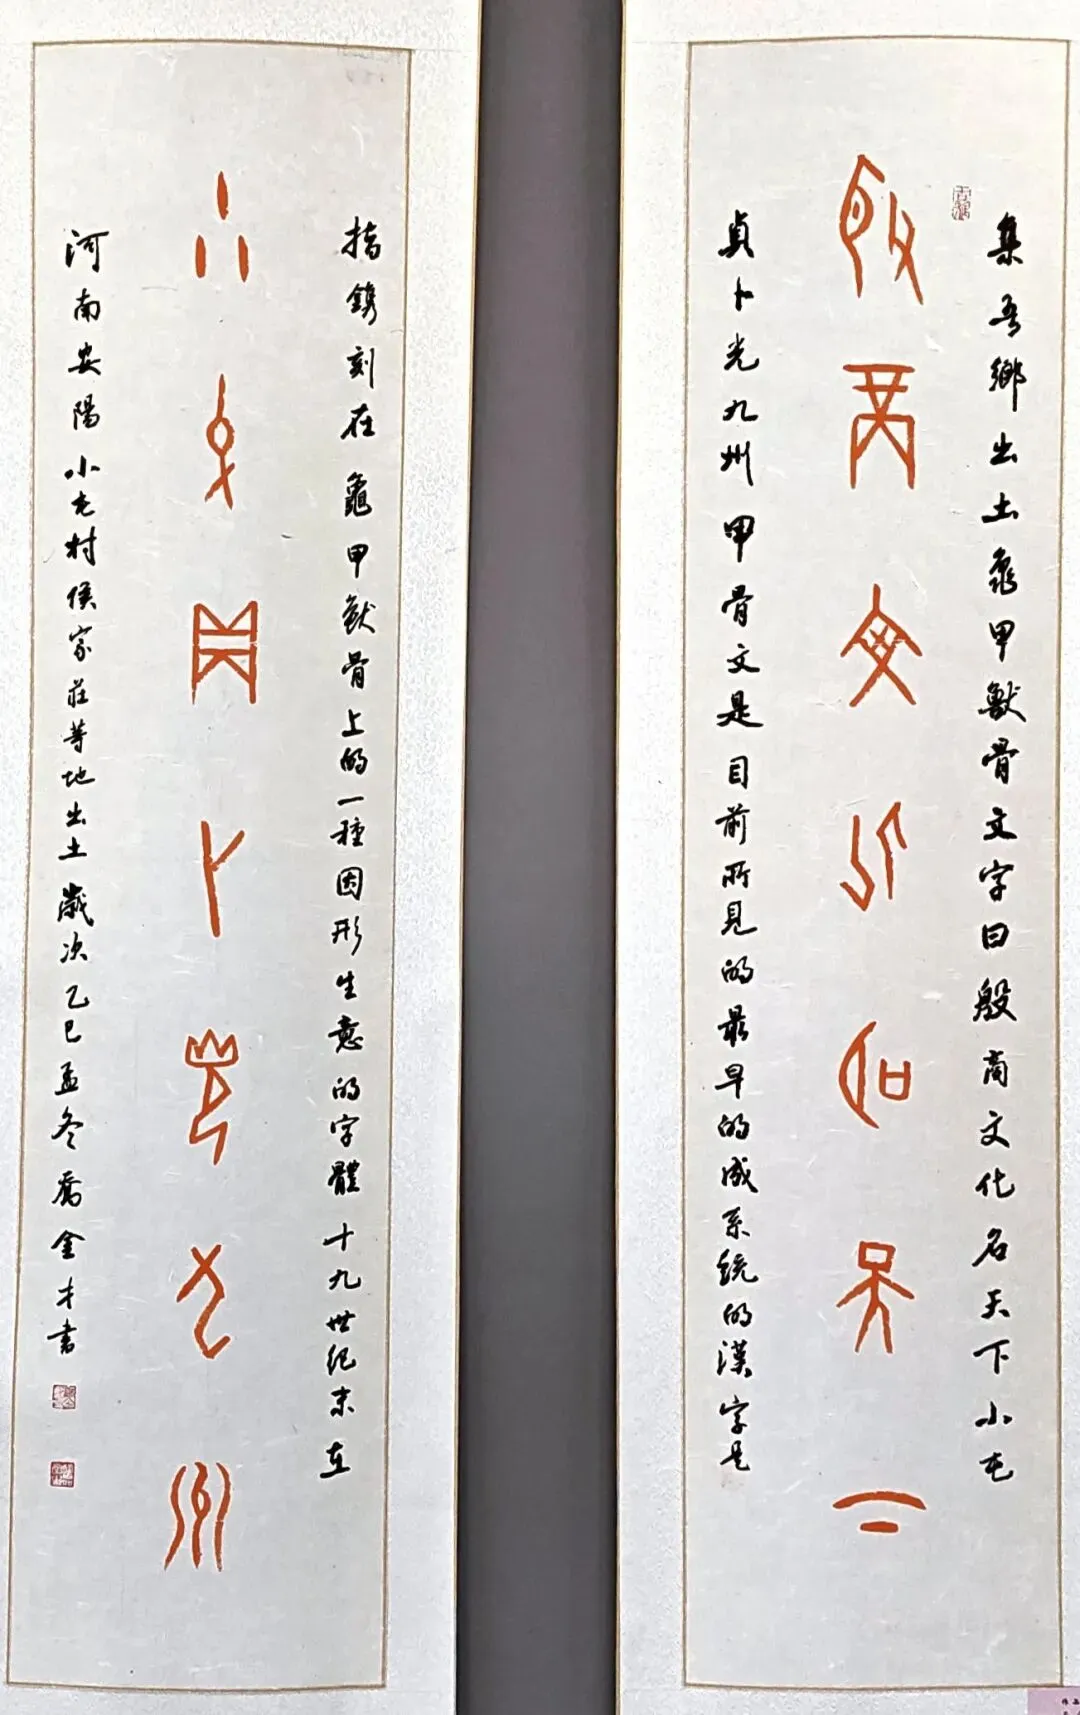 集吾鄉出土龜甲獸骨文字曰殷商文化名天下小屯
殷商文化名天下
貞卜光九州甲骨文是目前所見的最早的成系統的漢字是
指鐫刻在龜甲獸骨上的一種因形生意的字體十九世紀末在
小屯貞卜光九州
河南安陽小屯村侯家莊等地出土歲次乙巳孟冬喬金才書